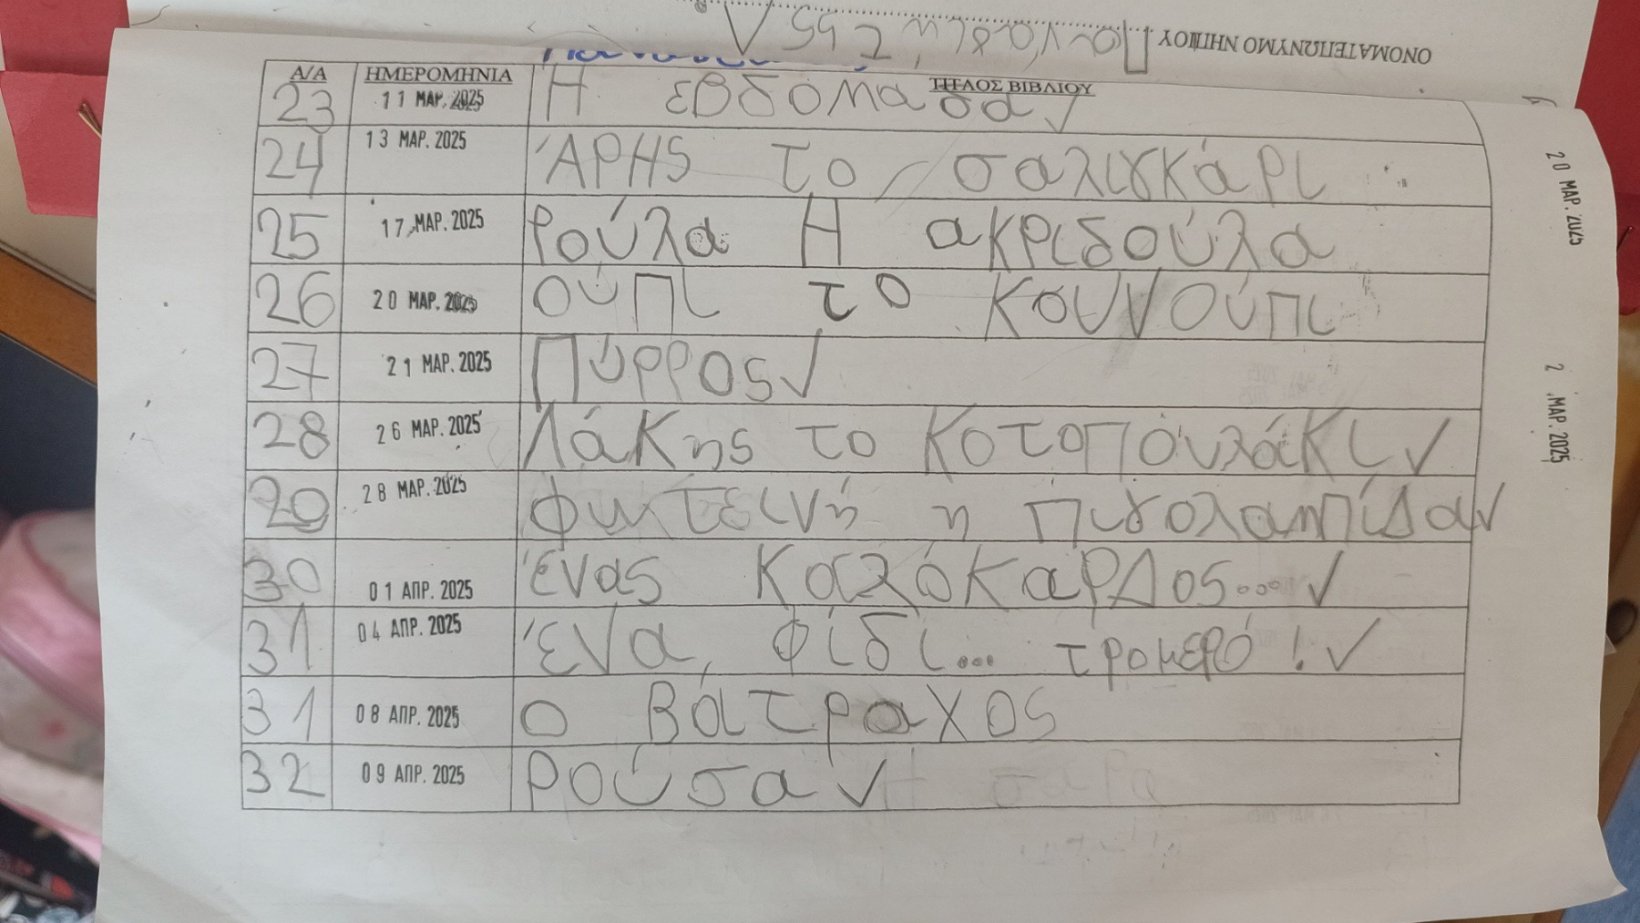 ΟΝΟΜΑΤΕΠΩΝΥΜΟ ΝΗΠΙΟΥ
Α/Α ΗΜΕΡΟΜΗΝΙΑ ΤΙΤΛΟΣ ΒΙΒΛΙΟΥ
23 11 ΜΑΡ. 2025 Η εβδομαδα √
24 13 ΜΑΡ. 2025 ΆΡΗς το σαλιγκάρι
25 17 ΜΑΡ. 2025 Ρούλα Η ακριδούλα
26 20 ΜΑΡ. 2025 ούπι το κουνούπι
27 21 ΜΑΡ. 2025 Πύρρος √
28 26 ΜΑΡ. 2025 Λάκης το κοτοπουλάκι √
29 28 ΜΑΡ. 2025 φωτεινή η πυγολαμπίδα √
30 01 ΑΠΡ. 2025 Ένας καλόκαρδος... √
31 04 ΑΠΡ. 2025 Ένα φίδι... τρομερό! √
31 08 ΑΠΡ. 2025 ο Βάτραχος
32 09 ΑΠΡ. 2025 Ρούσα √
20 ΜΑΡ. 2025
2 ΜΑΡ. 2025